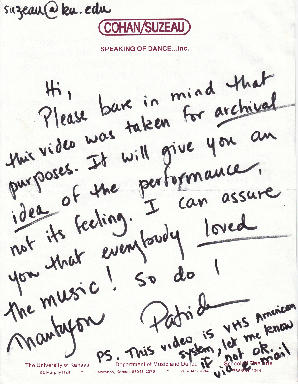 suzeau@ku.edu
COHAN/SUZEAU
SPEAKING OF DANCE...Inc.
Hi,
Please bare in mind that
this video was taken for archival
purposes. It will give you an
idea of the performance,
not its feeling. I can assure
you that everybody loved
the music! So do I
Thankyou Patrick
PS. This video is VHS American
system, let me know
if not OK.
via e-mail
The University of Kansas
Department of Music and Dance